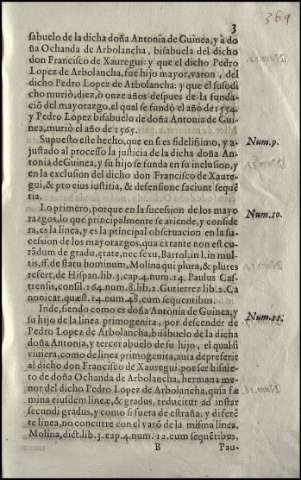 3
369
sabuelo de la dicha doña Antonia de Guinea, y à do
ña Ochanda de Arbolancha, bisabuela del dicho
don Francisco de Xauregui: y que el dicho Pedro
Lopez de Arbolancha, fue hijo mayor, varon, del
dicho Pedro Lopez de Arbolancha: y que el susodi
cho muriò, diez, ò onze años despues de la funda-
ciõ del mayorazgo, el qual se fundò el año de 1554.
y Pedro Lopez bisabuelo de doña Antonia de Gui-
nea, murio el año de 1565.
Supuesto este hecho, que en si es fidelissimo, y a-
justado al processo la justicia de la dicha doña An-
tonia de Guinea, y su hijo se funda en su inclusion, y
en la exclusion del dicho don Francisco de Xaure-
gui, & pro eius iustitia, & defensione faciunt seque̅
tia.
Num.9.
Lo primero, porque en la sucession de los mayo
razgos, lo que principalmente se atiende, y conside
ra, es la linea, y es la principal obseruacion en la su-
cession de los mayorazgos, qua extante non est cu-
rãdum de gradu, ętate, nec sexu, Bartol. in l. in mul-
tis, ff. de statu hominum, Molina qui plura, & plures
refert, de Hispan. lib. 3. cap. 4. num. 14. Paulus Cas-
trensis, consil. 164. num. 8. lib. 2. Gutierrez lib. 2. Ca
nonicar. quæst. 14. num. 48. cum sequentibus.
Num.10.
Inde, siendo como es doña Antonia de Guinea, y
su hijo de la linea primogenita, por descender de
Pedro Lopez de Arbolancha, bisabuelo de la dicha
doña Antonia, y tercer abuelo de su hijo, el qual si
viuiera, como de linea primogenita, auia de preferir
al dicho don Francisco de Xauregui por ser bisnie-
to de doña Ochanda de Arbolancha, hermana me
nor del dicho Pedro Lopez de Arbolancha, quia fæ
mina eiusdem lineæ, & gradus, reducitur ad instar
secundi gradus, y como si fuera de estraña, y difere̅
te linea, no concurre con el varõ de la misma linea.
Molina, dict. lib. 3. cap. 4. num. 12. cum sequẽtibus.
Num.11.
B
Pau-